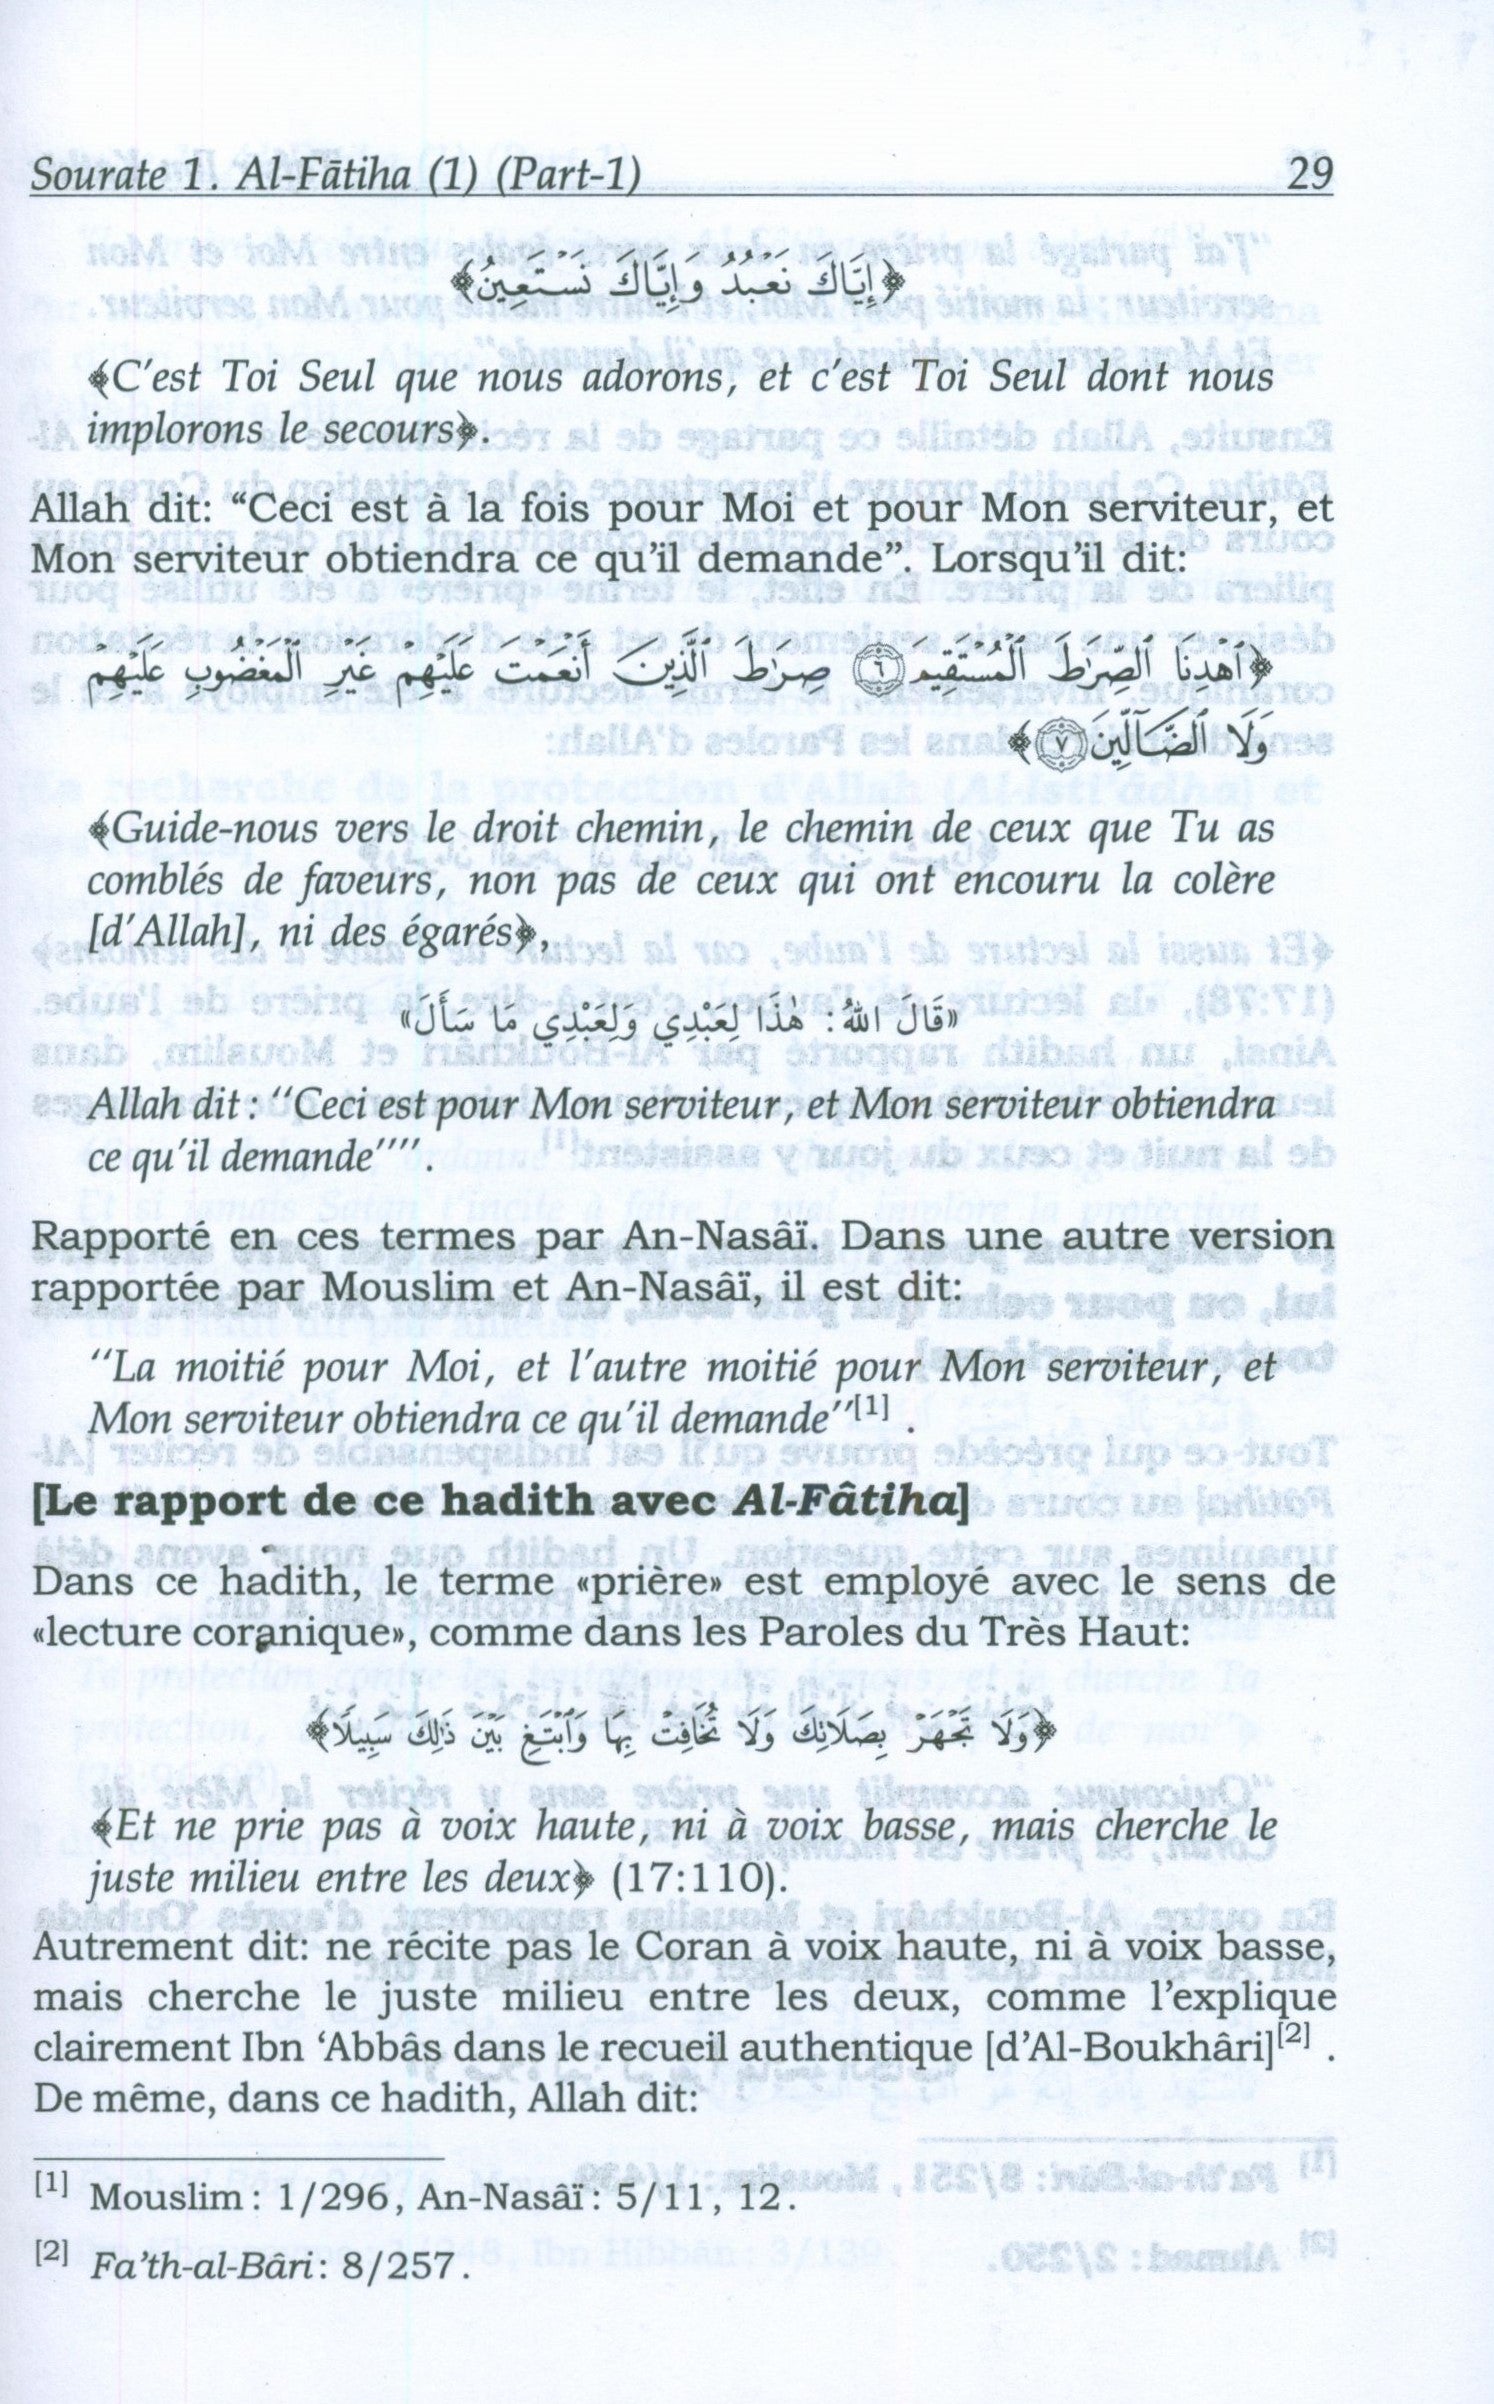 Sourate 1. Al-Fātiha (1) (Part-1) 29
﴿إِيَّاكَ نَعْبُدُ وَإِيَّاكَ نَسْتَعِينُ﴾
﴾C’est Toi Seul que nous adorons, et c’est Toi Seul dont nous
implorons le secours﴿.
Allah dit: “Ceci est à la fois pour Moi et pour Mon serviteur, et
Mon serviteur obtiendra ce qu’il demande”. Lorsqu’il dit:
﴿ٱهْدِنَا ٱلصِّرَٰطَ ٱلْمُسْتَقِيمَ ٦ صِرَٰطَ ٱلَّذِينَ أَنْعَمْتَ عَلَيْهِمْ غَيْرِ ٱلْمَغْضُوبِ عَلَيْهِمْ
وَلَا ٱلضَّآلِّينَ ٧﴾
﴾Guide-nous vers le droit chemin, le chemin de ceux que Tu as
comblés de faveurs, non pas de ceux qui ont encouru la colère
[d’Allah], ni des égarés﴿,
«قَالَ اللهُ: هٰذَا لِعَبْدِي وَلِعَبْدِي مَا سَأَلَ»
Allah dit : ‘‘Ceci est pour Mon serviteur, et Mon serviteur obtiendra
ce qu’il demande’’’’.
Rapporté en ces termes par An-Nasâï. Dans une autre version
rapportée par Mouslim et An-Nasâï, il est dit:
‘‘La moitié pour Moi, et l’autre moitié pour Mon serviteur, et
Mon serviteur obtiendra ce qu’il demande’’[1] .
[Le rapport de ce hadith avec Al-Fâtiha]
Dans ce hadith, le terme «prière» est employé avec le sens de
«lecture coranique», comme dans les Paroles du Très Haut:
﴿وَلَا تَجْهَرْ بِصَلَاتِكَ وَلَا تُخَافِتْ بِهَا وَٱبْتَغِ بَيْنَ ذَٰلِكَ سَبِيلًا﴾
﴾Et ne prie pas à voix haute, ni à voix basse, mais cherche le
juste milieu entre les deux﴿ (17:110).
Autrement dit: ne récite pas le Coran à voix haute, ni à voix basse,
mais cherche le juste milieu entre les deux, comme l’explique
clairement Ibn ‘Abbâs dans le recueil authentique [d’Al-Boukhâri][2] .
De même, dans ce hadith, Allah dit:
[1] Mouslim : 1/296, An-Nasâï : 5/11, 12.
[2] Fa’th-al-Bâri : 8/257.